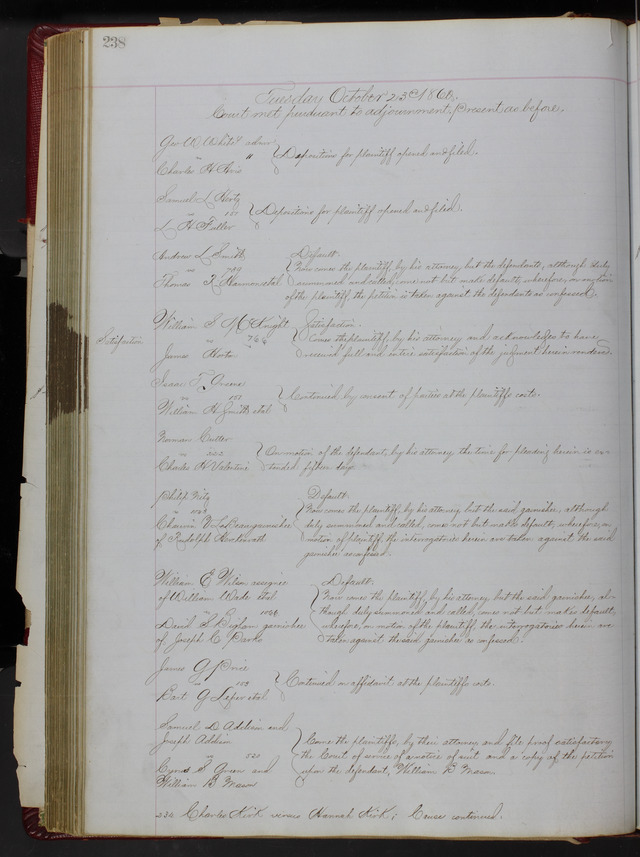 238
Tuesday October 23d 1866.
Court met pursuant to adjournment; Present as before.
Geo W White admr
" " Depositions for plaintiff opened and filed.
Charles H
Samuel L
" 157 Depositions for plaintiff opened and filed.
L H Fuller
Andrew L Smith Default.
" 799 Now comes the plaintiff, by his attorney, but the defendants, although duly
Thomas T et al summoned and called, come not but make default; wherefore, on motion
of the plaintiff, the petition is taken against the defendants as confessed.
William S McKnight Satisfaction.
Satisfaction " 766 Comes the plaintiff, by his attorney and acknowledges to have
James Horton received full and entire satisfaction of the judgment herein rendered.
Isaac T Greene
" 151 Continued by consent of parties at the plaintiffs costs.
William H Smith et al
Norman Cutter
" 222 On motion of the defendant, by his attorney the time for pleading herein is ex-
Charles H Valentine tended fifteen days.
Philip Default.
" Now comes the plaintiff, by his attorney, but the said garnishee, although
garnishee duly summoned and called, comes not but makes default; wherefore, on
of Rudolph motion of plaintiff, the interrogatories herein are taken against the said
garnishee as confessed.
William E Wilson assignee Default.
of William Wade et al Now comes the plaintiff, by his attorney, but the said garnishee, al-
" 1066 though duly summoned and called, comes not but makes default;
David S Bigham garnishee wherefore, on motion of the plaintiff the interrogatories herein are
of Joseph C Parks taken against the said garnishee as confessed.
James G Price
" 159 Continued on affidavit at the plaintiffs costs.
Bart G et al
Samuel D Addison and
Joseph Addison Come the plaintiffs, by their attorney, and file proof satisfactory
" 521 the Court of service of a notice of suit and a copy of the petition
Cyrus S Green and upon the defendant, William B Mason.
William B Mason
230 Charles Kirk versus Hannah Kirk; Cause continued.